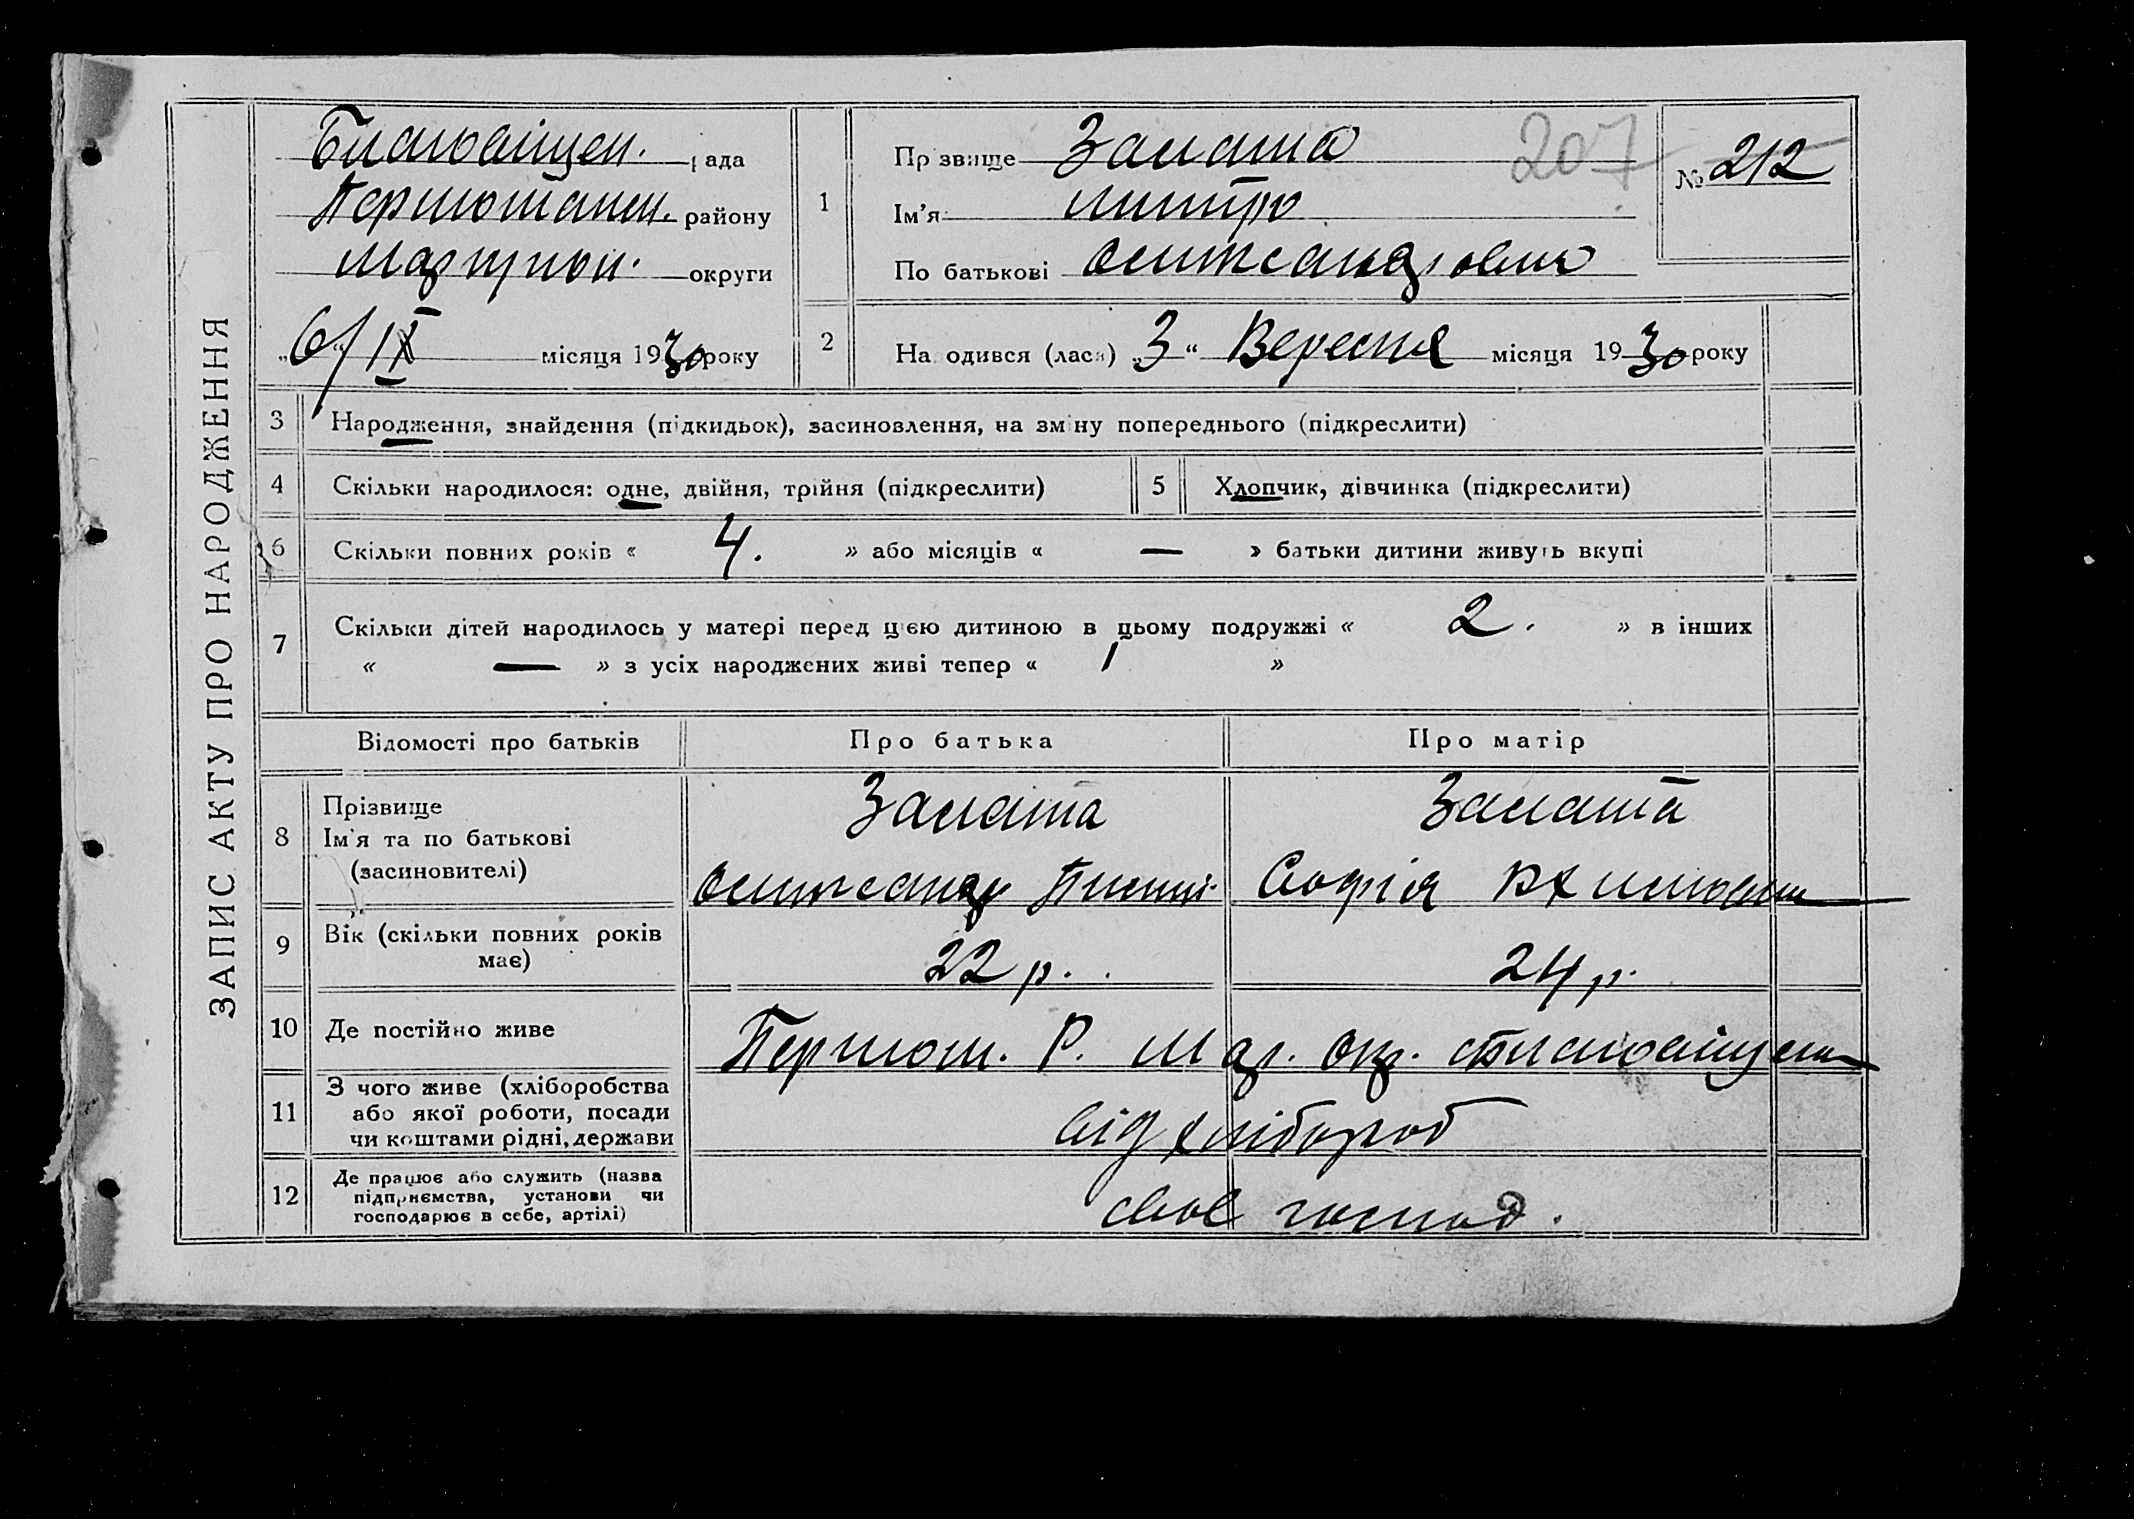 ЗАПИС АКТУ ПРО НАРОДЖЕННЯ
Благовіщен. рада
Першотавен. району
Маріупол. округи
„6“ IX місяця 1930 року
1
Прізвище
207
№ 212
Ім'я Дмитро
По батькові Олександрович
2
Народився (лася) „3“ Вересня місяця 1930 року
3 Народження, знайдення (підкидьок), засиновлення, на зміну попереднього (підкреслити)
4 Скільки народилося: одне, двійня, трійня (підкреслити)
5 Хлопчик, дівчинка (підкреслити)
6 Скільки повних років « 4. » або місяців « — » батьки дитини живуть вкупі
7 Скільки дітей народилось у матері перед цією дитиною в цьому подружжі « 2. » в інших
« — » з усіх народжених живі тепер « 1 »
Відомості про батьків Про батька Про матір
8 Прізвище
Ім'я та по батькові
(засиновителі)
Олександр
Софія
9 Вік (скільки повних років
має)
22 р. 24 р.
10 Де постійно живе
Першот. Р. Мар. окр. с Благовіщен
11 З чого живе (хліборобства
або якої роботи, посади
чи коштами рідні, держави
від хлібороб
12 Де працює або служить (назва
підприємства, установи чи
господарює в себе, артілі)
своє господ.